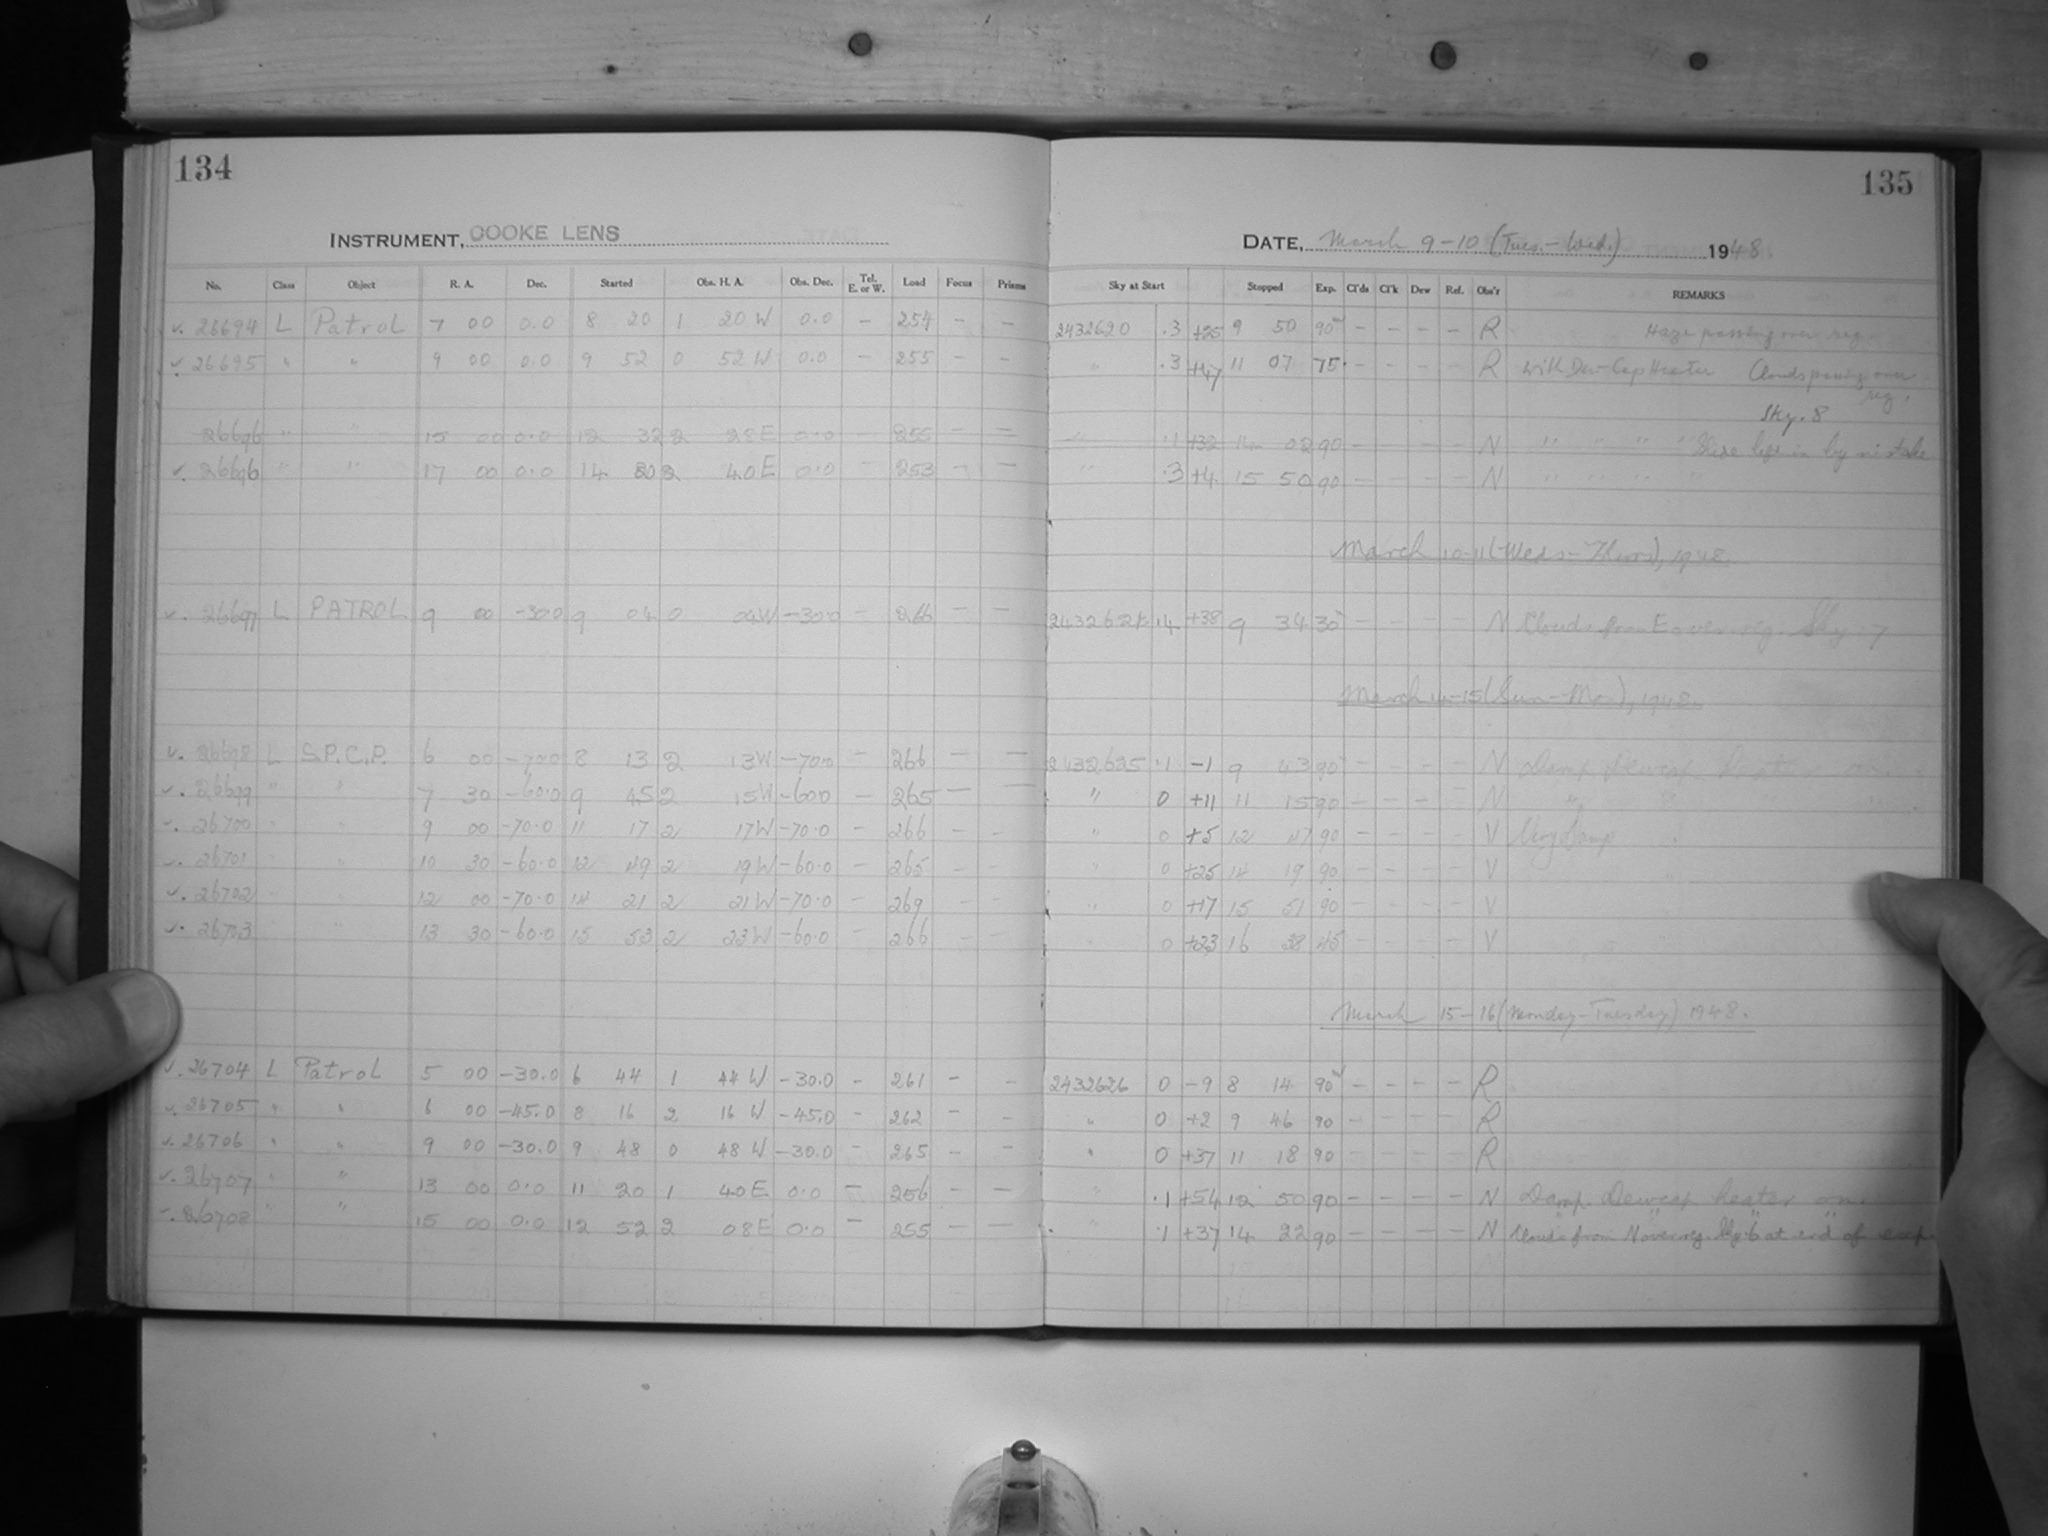 134
135
INSTRUMENT, COOKE LENS
DATE, March 9-10 (Tues.-Wed.) 1948.
No. Class Object R. A. Dec. Started Obs. H. A. Obs. Dec. Tel. E. or W. Load Focus Prisms Sky at Start Stopped Exp. Cl'ds Cl'k Dew Ref. Obs'r REMARKS
v. 26694 L Patrol 7 00 0.0 8 20 1 20 W 0.0 - 254 - - 2432620 .3 +25 9 50 90 - - - - R Haze passing over reg.
v. 26695 " " 9 00 0.0 9 52 0 52 W 0.0 - 255 - - " .3 +47 11 07 75 - - - - R With Dew-Cap Heater Clouds passing over reg.
Sky .8
26696 " " 15 00 0.0 12 32 2 28 E 0.0 - 255 - - " .1 +32 14 02 90 - - - - N " " " " Slide left in by mistake
v. 26696 " " 17 00 0.0 14 20 2 40 E 0.0 - 253 - - " .3 +4 15 50 90 - - - - N " " " "
March 10-11 (Weds-Thurs), 1948.
v. 26697 L PATROL 9 00 -30.0 9 04 0 04 W -30.0 - 266 - - 2432621 .4 +38 9 34 30 - - - - N Clouds from E over reg. Sky .7
March 14-15 (Sun-Mon), 1948.
v. 26698 L S.P.C.P. 6 00 -70.0 8 13 2 13 W -70.0 - 266 - - 2432625 .1 -1 9 43 90 - - - - N Damp Dewcap Heater on.
v. 26699 " " 7 30 -60.0 9 45 2 15 W -60.0 - 265 - - " 0 +11 11 15 90 - - - - N "
v. 26700 " " 9 00 -70.0 11 17 2 17 W -70.0 - 266 - - " 0 +5 12 47 90 - - - - V Very Damp
v. 26701 " " 10 30 -60.0 12 49 2 19 W -60.0 - 265 - - " 0 +25 14 19 90 - - - - V
v. 26702 " " 12 00 -70.0 14 21 2 21 W -70.0 - 269 - - " 0 +17 15 51 90 - - - - V
v. 26703 " " 13 30 -60.0 15 53 2 23 W -60.0 - 266 - - " 0 +23 16 38 45 - - - - V
March 15-16 (Monday-Tuesday) 1948.
v. 26704 L Patrol 5 00 -30.0 6 44 1 44 W -30.0 - 261 - - 2432626 0 -9 8 14 90 - - - - R
v. 26705 " " 6 00 -45.0 8 16 2 16 W -45.0 - 262 - - " 0 +2 9 46 90 - - - - R
v. 26706 " " 9 00 -30.0 9 48 0 48 W -30.0 - 265 - - " 0 +37 11 18 90 - - - - R
v. 26707 " " 13 00 0.0 11 20 1 40 E 0.0 - 256 - - " .1 +54 12 50 90 - - - - N Damp. Dewcap heater on.
v. 26708 " " 15 00 0.0 12 52 2 08 E 0.0 - 255 - - " .1 +37 14 22 90 - - - - N Clouds from N over reg. Sky .6 at end of exp.